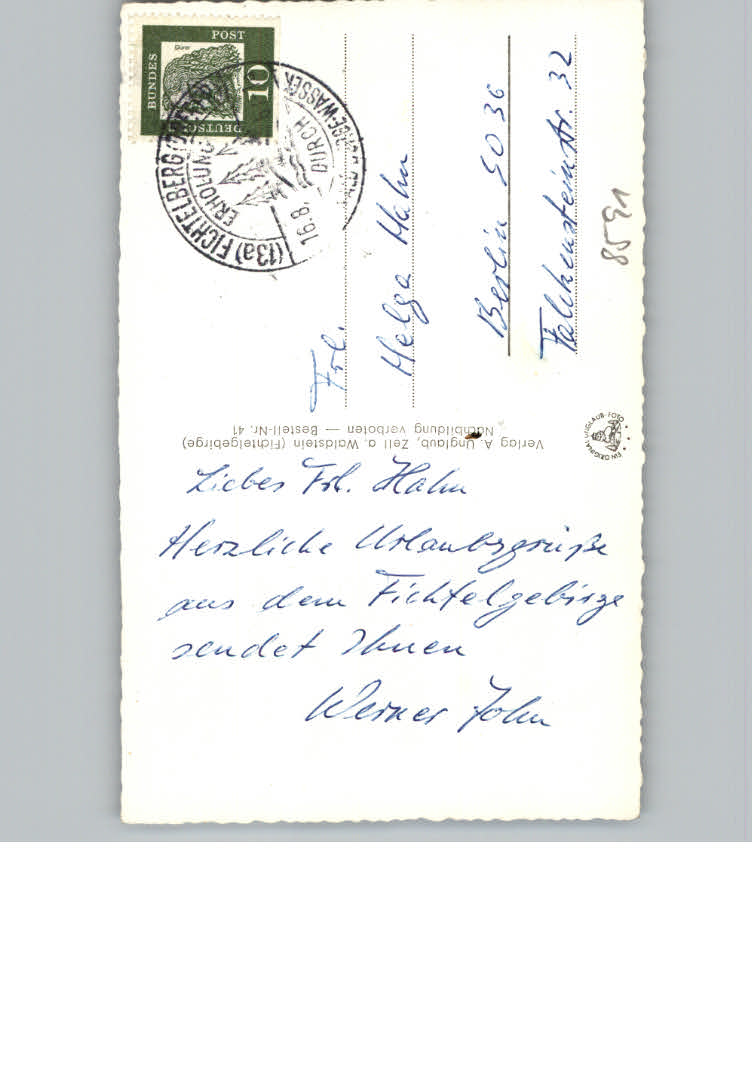 DEUTSCHE
BUNDES
POST
Dürer
10
(13a) FICHTELBERG
ERHOLUNG
DURCH
16.8.
Frl.
Helga Hahn
Berlin SO 36
Falckensteinstr. 32
8591
Verlag A. Unglaub, Zell a. Waldstein (Fichtelgebirge)
Nachbildung verboten — Bestell-Nr. 41
EIN ORIGINAL UNGLAUB-FOTO
Liebes Frl. Hahn
Herzliche Urlaubsgrüße
aus dem Fichtelgebirge
sendet Ihnen
Werner John